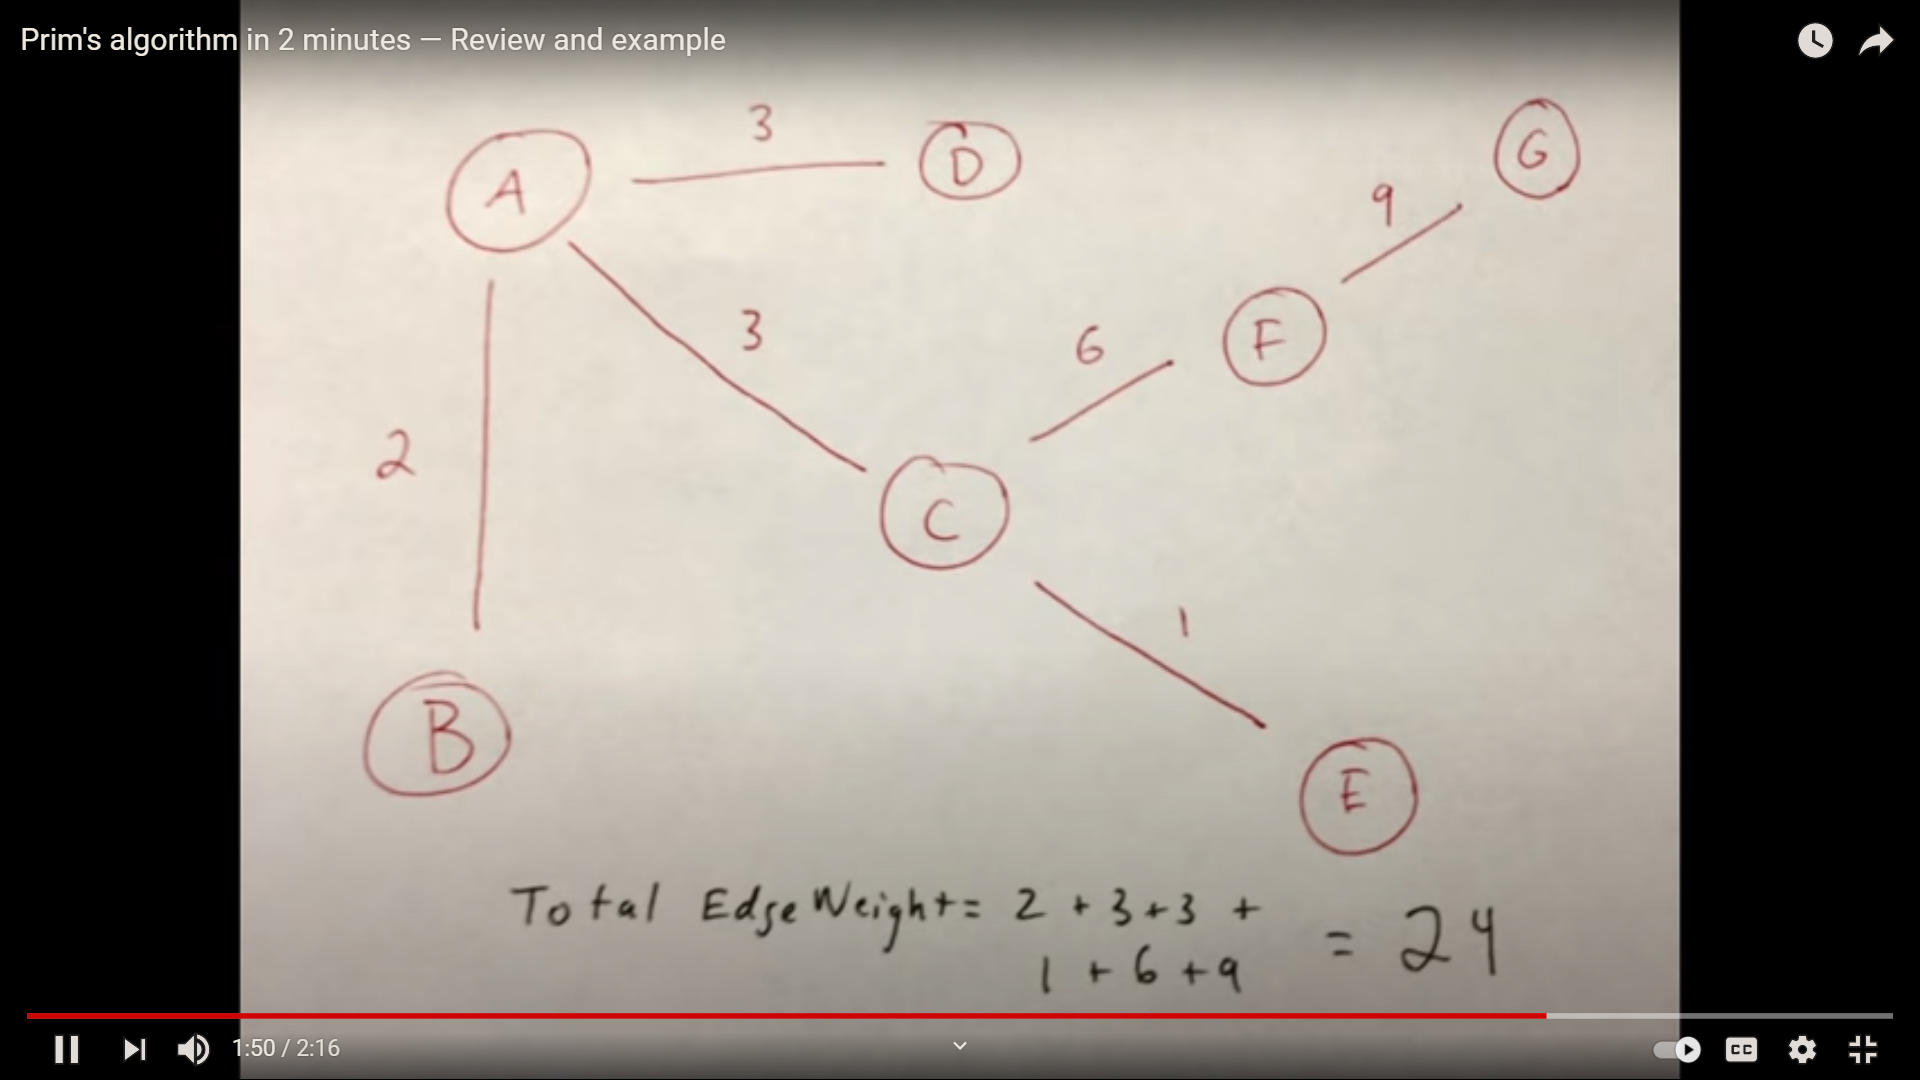 Prim's algorithm in 2 minutes — Review and example
3
A
D
G
9
3
6
F
2
C
1
B
E
Total Edge Weight = 2 + 3 + 3 +
1 + 6 + 9
= 24
1:50 / 2:16
CC